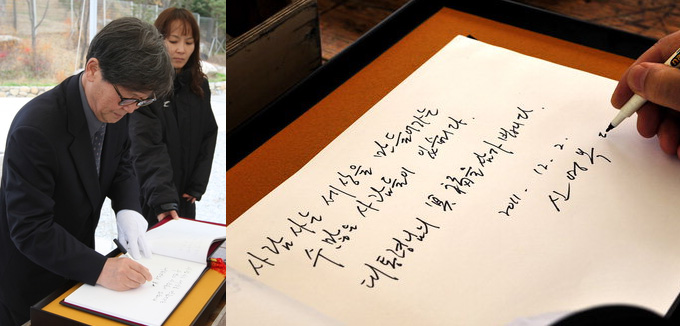 사람사는 세상을 만들어가는
수많은 사람들이 있습니다.
대통령님의 몫 꿈을 삼가 빕니다.
2011. 12. 2.
신영복